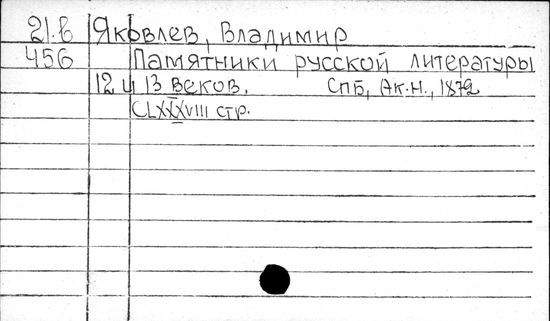 21.6 Яковлев, Владимир
456 Памятники русской литературы
12 и 13 веков. СПБ, Ак.Н., 1872
CLXXXVIII стр.